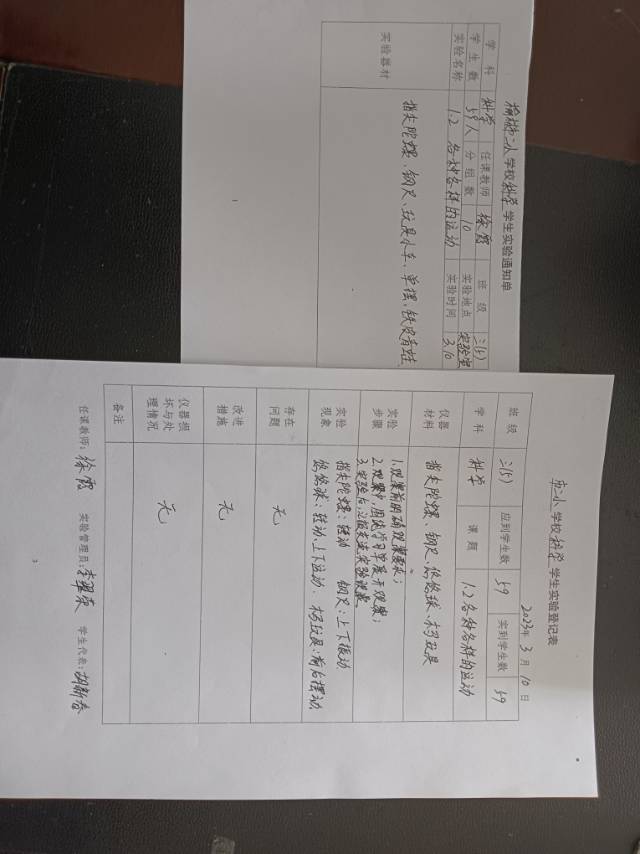 学校科学学生实验通知单
学科 科学 任课教师 徐霞 班级 三(5)
学生数 59人 分组数 10 实验地点 实验室
实验名称 1.2 各种各样的运动 实验时间 3.10
实验器材 指尖陀螺、钢尺、玩具小车、单摆、铁皮青蛙
1
学校科学学生实验登记表
2023年3月10日
班级 三(5) 应到学生数 59 实到学生数 59
学科 科学 课题 1.2各种各样的运动
仪器材料 指尖陀螺、钢尺、悠悠球、木马玩具
实验步骤 1.观察前明确观察要求；
2.观察中，用
3.实验后，
实验现象 指尖陀螺：转动 钢尺：上下振动
悠悠球：转动、上下运动 木马玩具：前后摆动
存在问题 无
改进措施 无
仪器损坏与处理情况 无
备注
任课教师：徐霞 实验管理员： 学生代表：胡新春